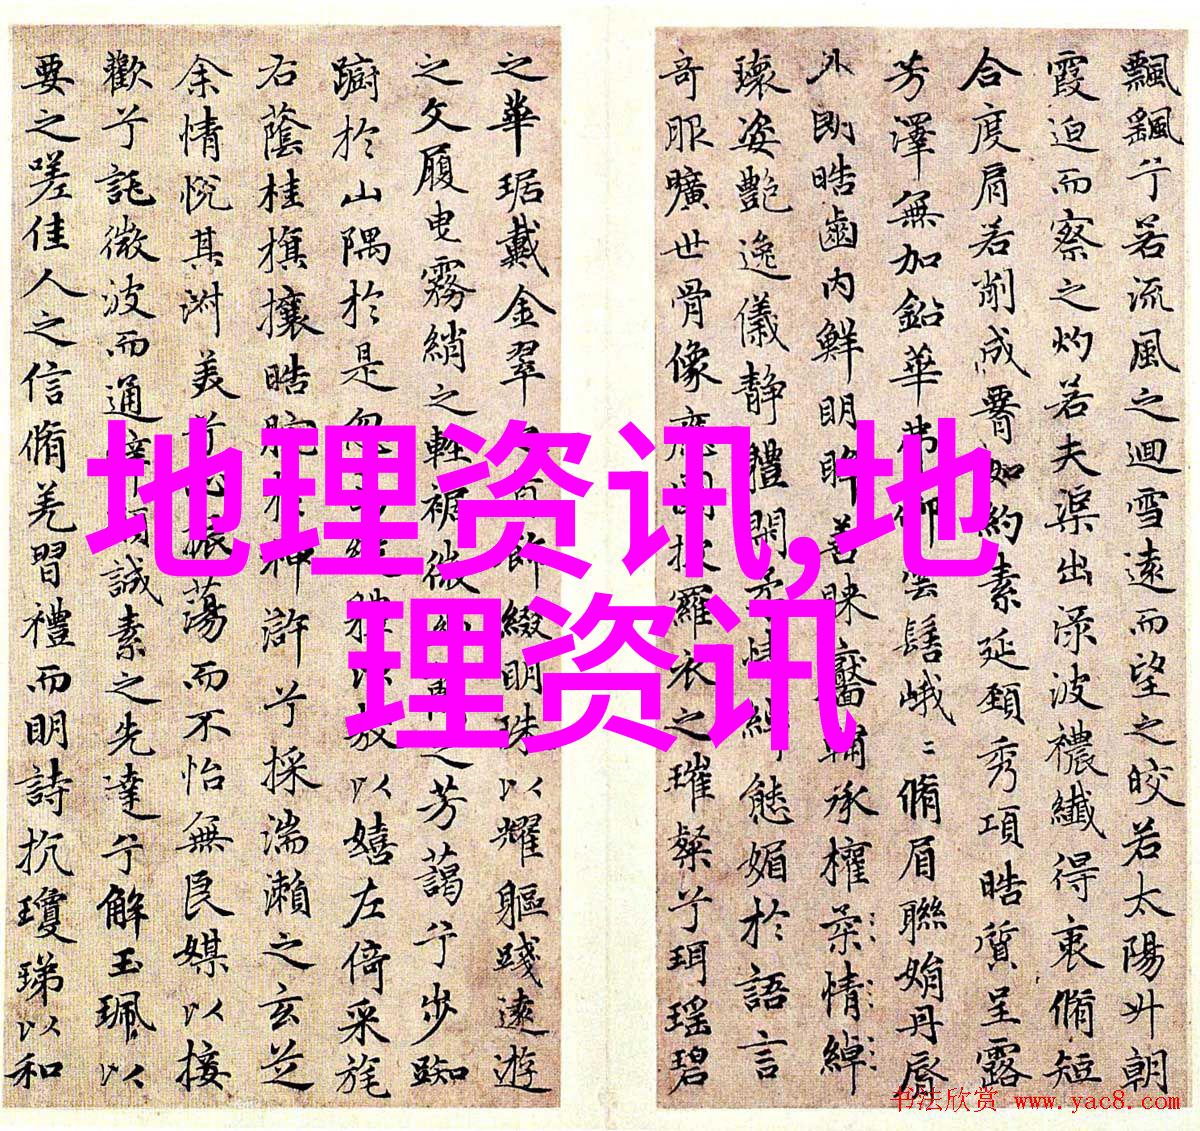 飄颻兮若流風之迴雪遠而望之皎若太陽升朝
霞迫而察之灼若夫渠出淥波禯纖得衷脩短
合度肩若削成如約素延頚秀項皓質呈露
芳澤無加鉛華弗御雲髻峨〻脩眉聯娟丹唇
外朗皓齒内鮮明眸善睞靨輔承權柔情綽
瓌姿艷逸儀静體閑柔情綽態媚於語言
奇服曠世骨像應圖披羅衣之璀粲兮珥瑶碧
之華琚戴金翠之首飾綴明珠以耀軀踐遠遊
之文履曳霧綃之輕裾微之芳藹兮步踟
蹰於山隅於是忽焉縱體以遨以嬉左倚采旄
右蔭桂旗攘皓腕於神滸兮採湍瀨之玄芝
余情悅其淑美兮心振蕩而不怡無良媒以接
歡兮託微波而通辭願誠素之先達兮解玉珮以
要之嗟佳人之信脩羌習禮而明詩抗瓊珶以和
地理资讯,地
理资讯
书法欣赏 www.yac8.com